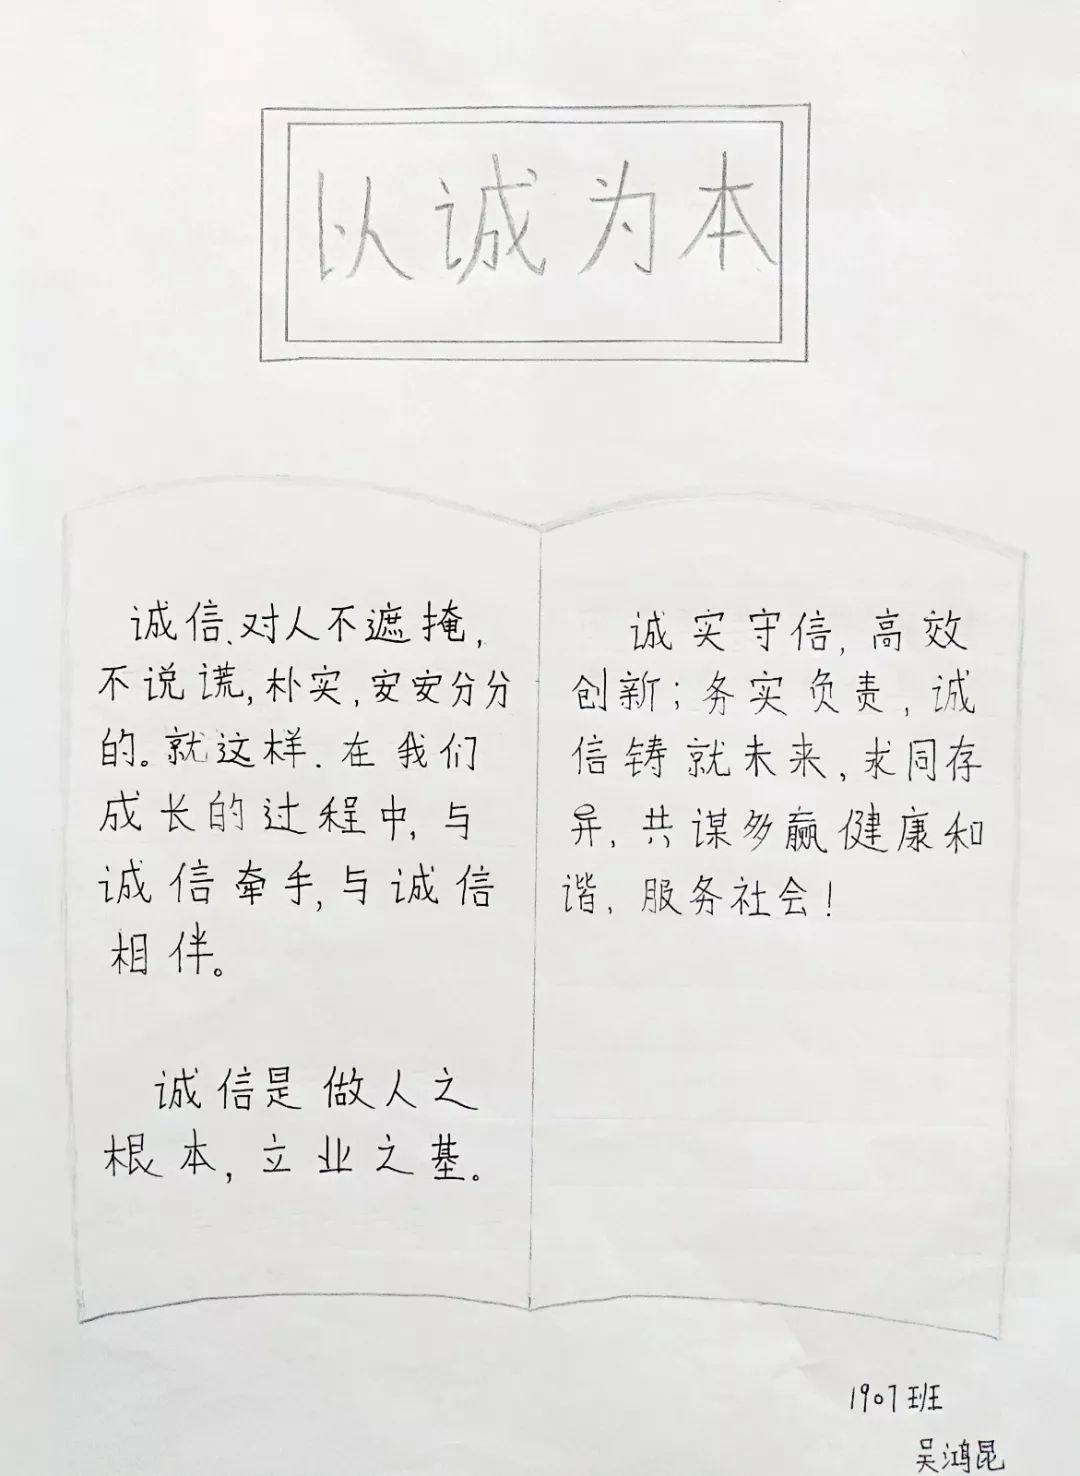 以诚为本
诚信、对人不遮掩,
不说谎,朴实,安安分分
的。就这样.在我们
成长的过程中,与
诚信牵手,与诚信
相伴。
诚信是做人之
根本,立业之基。
诚实守信,高效
创新;务实负责,诚
信铸就未来,求同存
异,共谋多赢健康和
谐,服务社会!
1907班
吴鸿昆